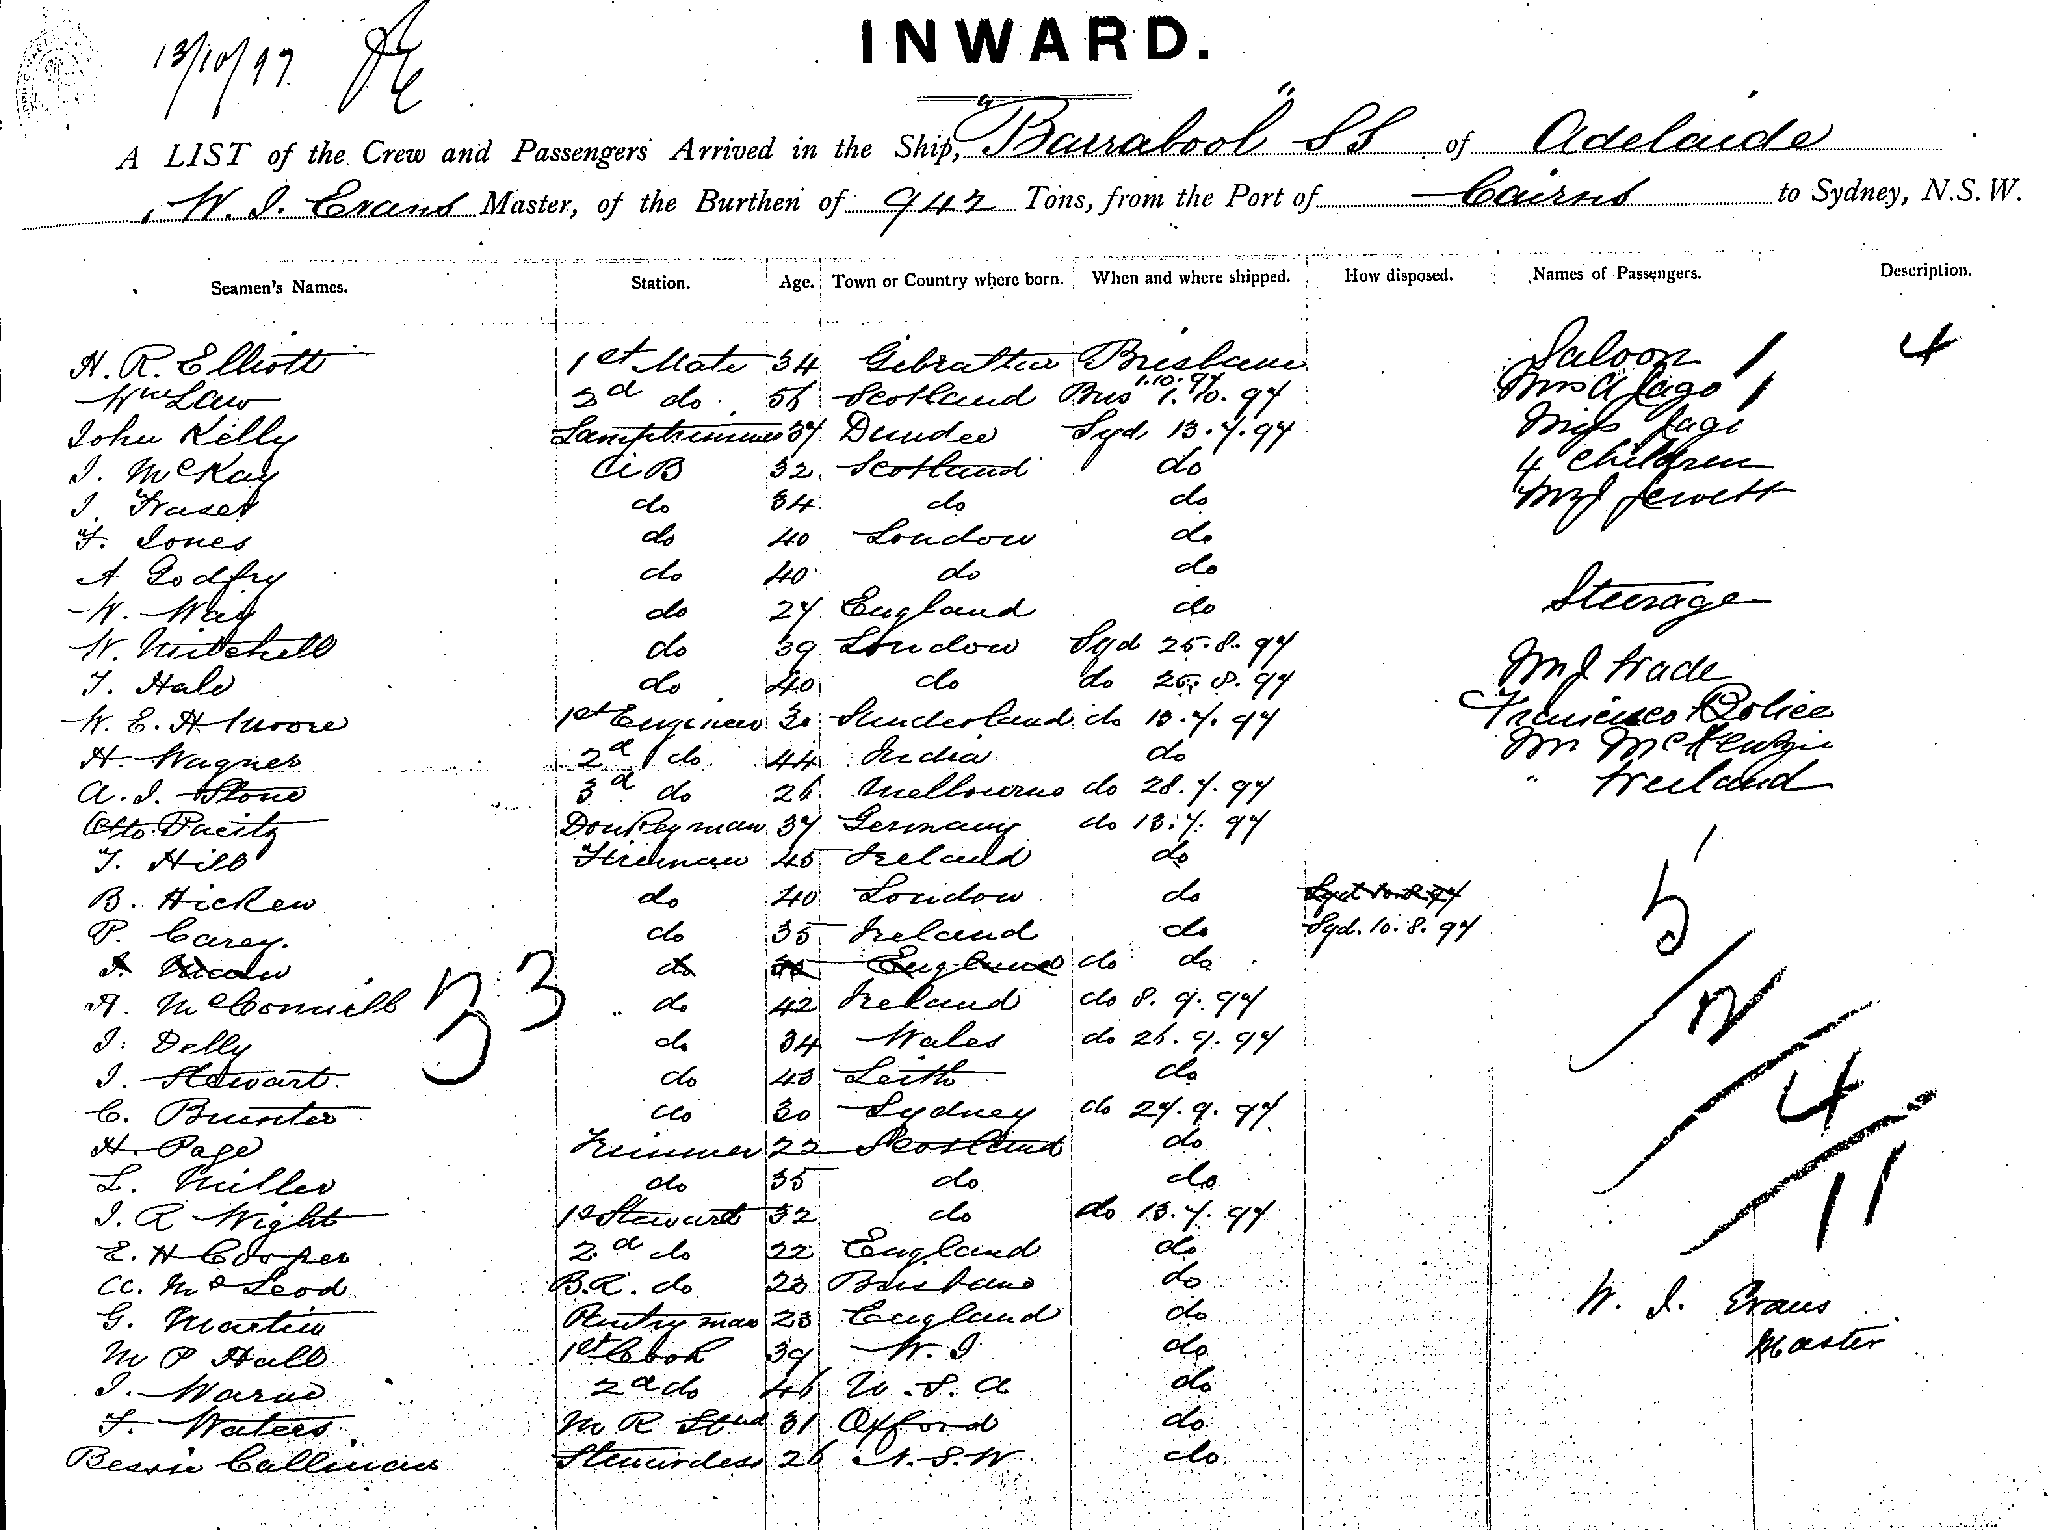 13/10/97
INWARD.
A LIST of the Crew and Passengers Arrived in the Ship, "Barrabool" SS of Adelaide
W. J. Evans Master, of the Burthen of 942 Tons, from the Port of Cairns to Sydney, N.S.W.
Seamen's Names. Station. Age. Town or Country where born. When and where shipped. How disposed. Names of Passengers. Description.
H. R. Elliott 1st Mate 34 Gibraltar Brisbane 1.10.97 Saloon 1 4
Wm Law 2d do 56 Scotland Bris 1.10.97 Mrs A Jago 1
John Kelly Lamptrimmer 37 Dundee Syd, 13.7.97 Miss Jago
J. McKay AB 32 Scotland do 4 Children
J. Fraser do 34 do do Mr J Jewett
F. Jones do 40 London do
A Godfry do 40 do do
W. Way do 27 England do Steerage
W. Mitchell do 39 London Syd 25.8.97
T. Hale do 40 do do 25.8.97 Mr J Wade
W. E. H Moore 1st Engineer 30 Sunderland do 13.7.97 Francisco
H. Wagner 2d do 44 India do Mr McKenzie
A. J. Stone 3d do 26 Melbourne do 28.7.97 " Ireland
Otto Donkeyman 37 Germany do 13.7.97
T. Hill Fireman 45 Ireland do
B. Hicken do 40 London do 5
P. Carey. do 35 Ireland do Syd. 10.8.97
do England do do
A. McConnell do 42 Ireland do 8.9.97 2
33
J. Delly do 34 Wales do 26.9.97
J. Stewart do 43 Leith do 4
C. Bunter do 30 Sydney do 27.9.97
H. Page Trimmer 22 Scotland do
L. Miller do 35 do do 11
J. R Wight 1st Stewart 32 do do 13.7.97
E. H Cooper 2d do 22 England do
A. McLeod B.R. do 23 Brisbane do W. J. Evans
G. Martin Pantryman 23 England do Master
M P Hall 1st Cook 39 W. I do
J. Warne 2d do 46 U.S.A do
F. Waters M R Stwd 31 Oxford do
Bessie Callinan Stewardess 26 N.S.W do